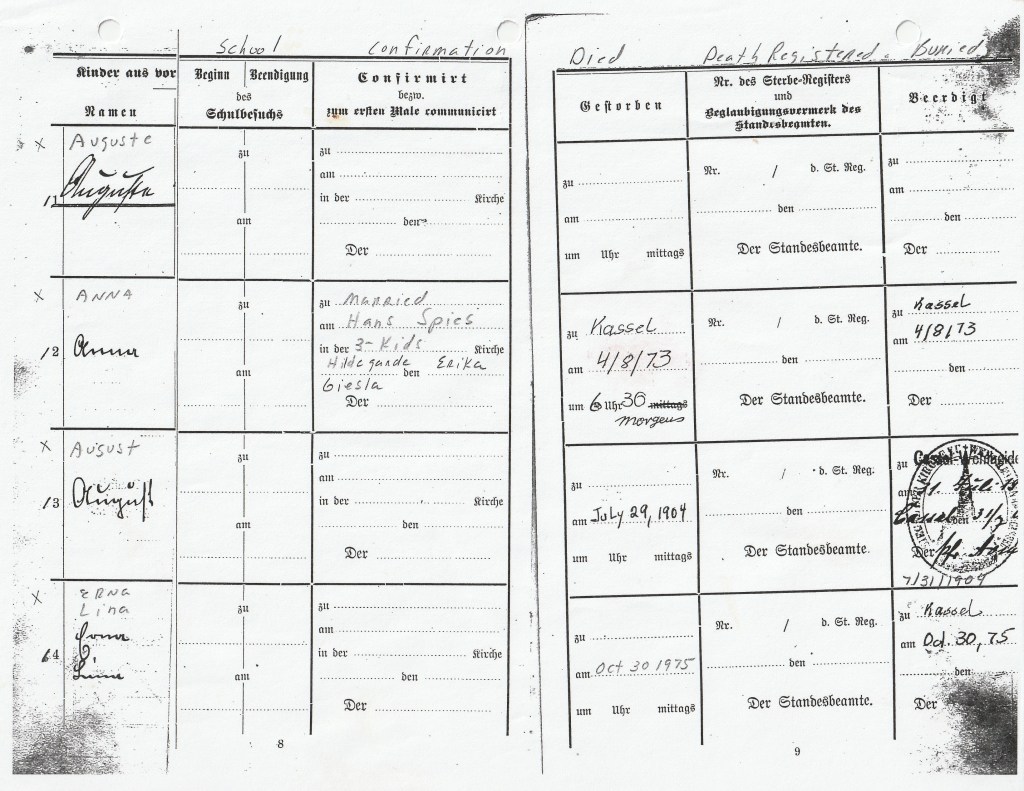 School Confirmation
Kinder aus vor
Namen
Beginn Beendigung
des
Schulbesuchs
Confirmirt
bezw.
zum ersten Male communicirt
x Auguste
11 Auguste
zu
am
zu
am
in der Kirche
den
Der
x ANNA
12 Anna
zu
am
zu Married
am Hans Spies
in der 3-Kids Kirche
Hildegarde den Erika
Giesla
Der
x August
13 August
zu
am
zu
am
in der Kirche
den
Der
x ERNA
Lina
14 Erna
Line
zu
am
zu
am
in der Kirche
den
Der
8
Died Death Registered Buried
Gestorben
Nr. des Sterbe-Registers
und
Beglaubigungsvermerk des
Standesbeamten.
Beerdigt
zu
am
um Uhr mittags
Nr. / d. St. Reg.
den
Der Standesbeamte.
zu
am
den
Der
zu Kassel
am 4/8/73
um 6 Uhr 36 mittags
morgens
Nr. / d. St. Reg.
den
Der Standesbeamte.
zu Kassel
am 4/8/73
den
Der
zu
am July 29, 1904
um Uhr mittags
Nr. / d. St. Reg.
den
Der Standesbeamte.
zu
am 31. Juli
Cassel den 31/7
Der
7/31/1904
zu
am Oct 30 1975
um Uhr mittags
Nr. / d. St. Reg.
den
Der Standesbeamte.
zu Kassel
am Oct. 30, 75
den
Der
9